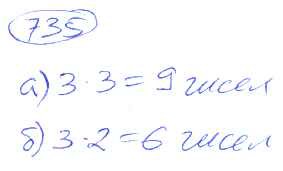 735
а) 3 · 3 = 9 чисел
б) 3 · 2 = 6 чисел